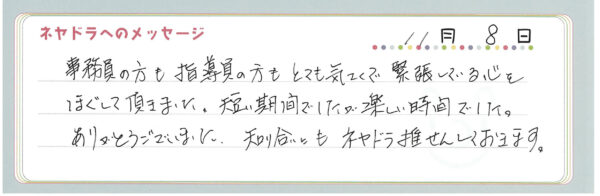 ネヤドラへのメッセージ
11月 8日
事務員の方も 指導員の方も とても気さくで 緊張している心を
ほぐして頂きました。短い期間でしたが楽しい時間でした。
ありがとうございました。知り合いにも ネヤドラ推せんしておきます。